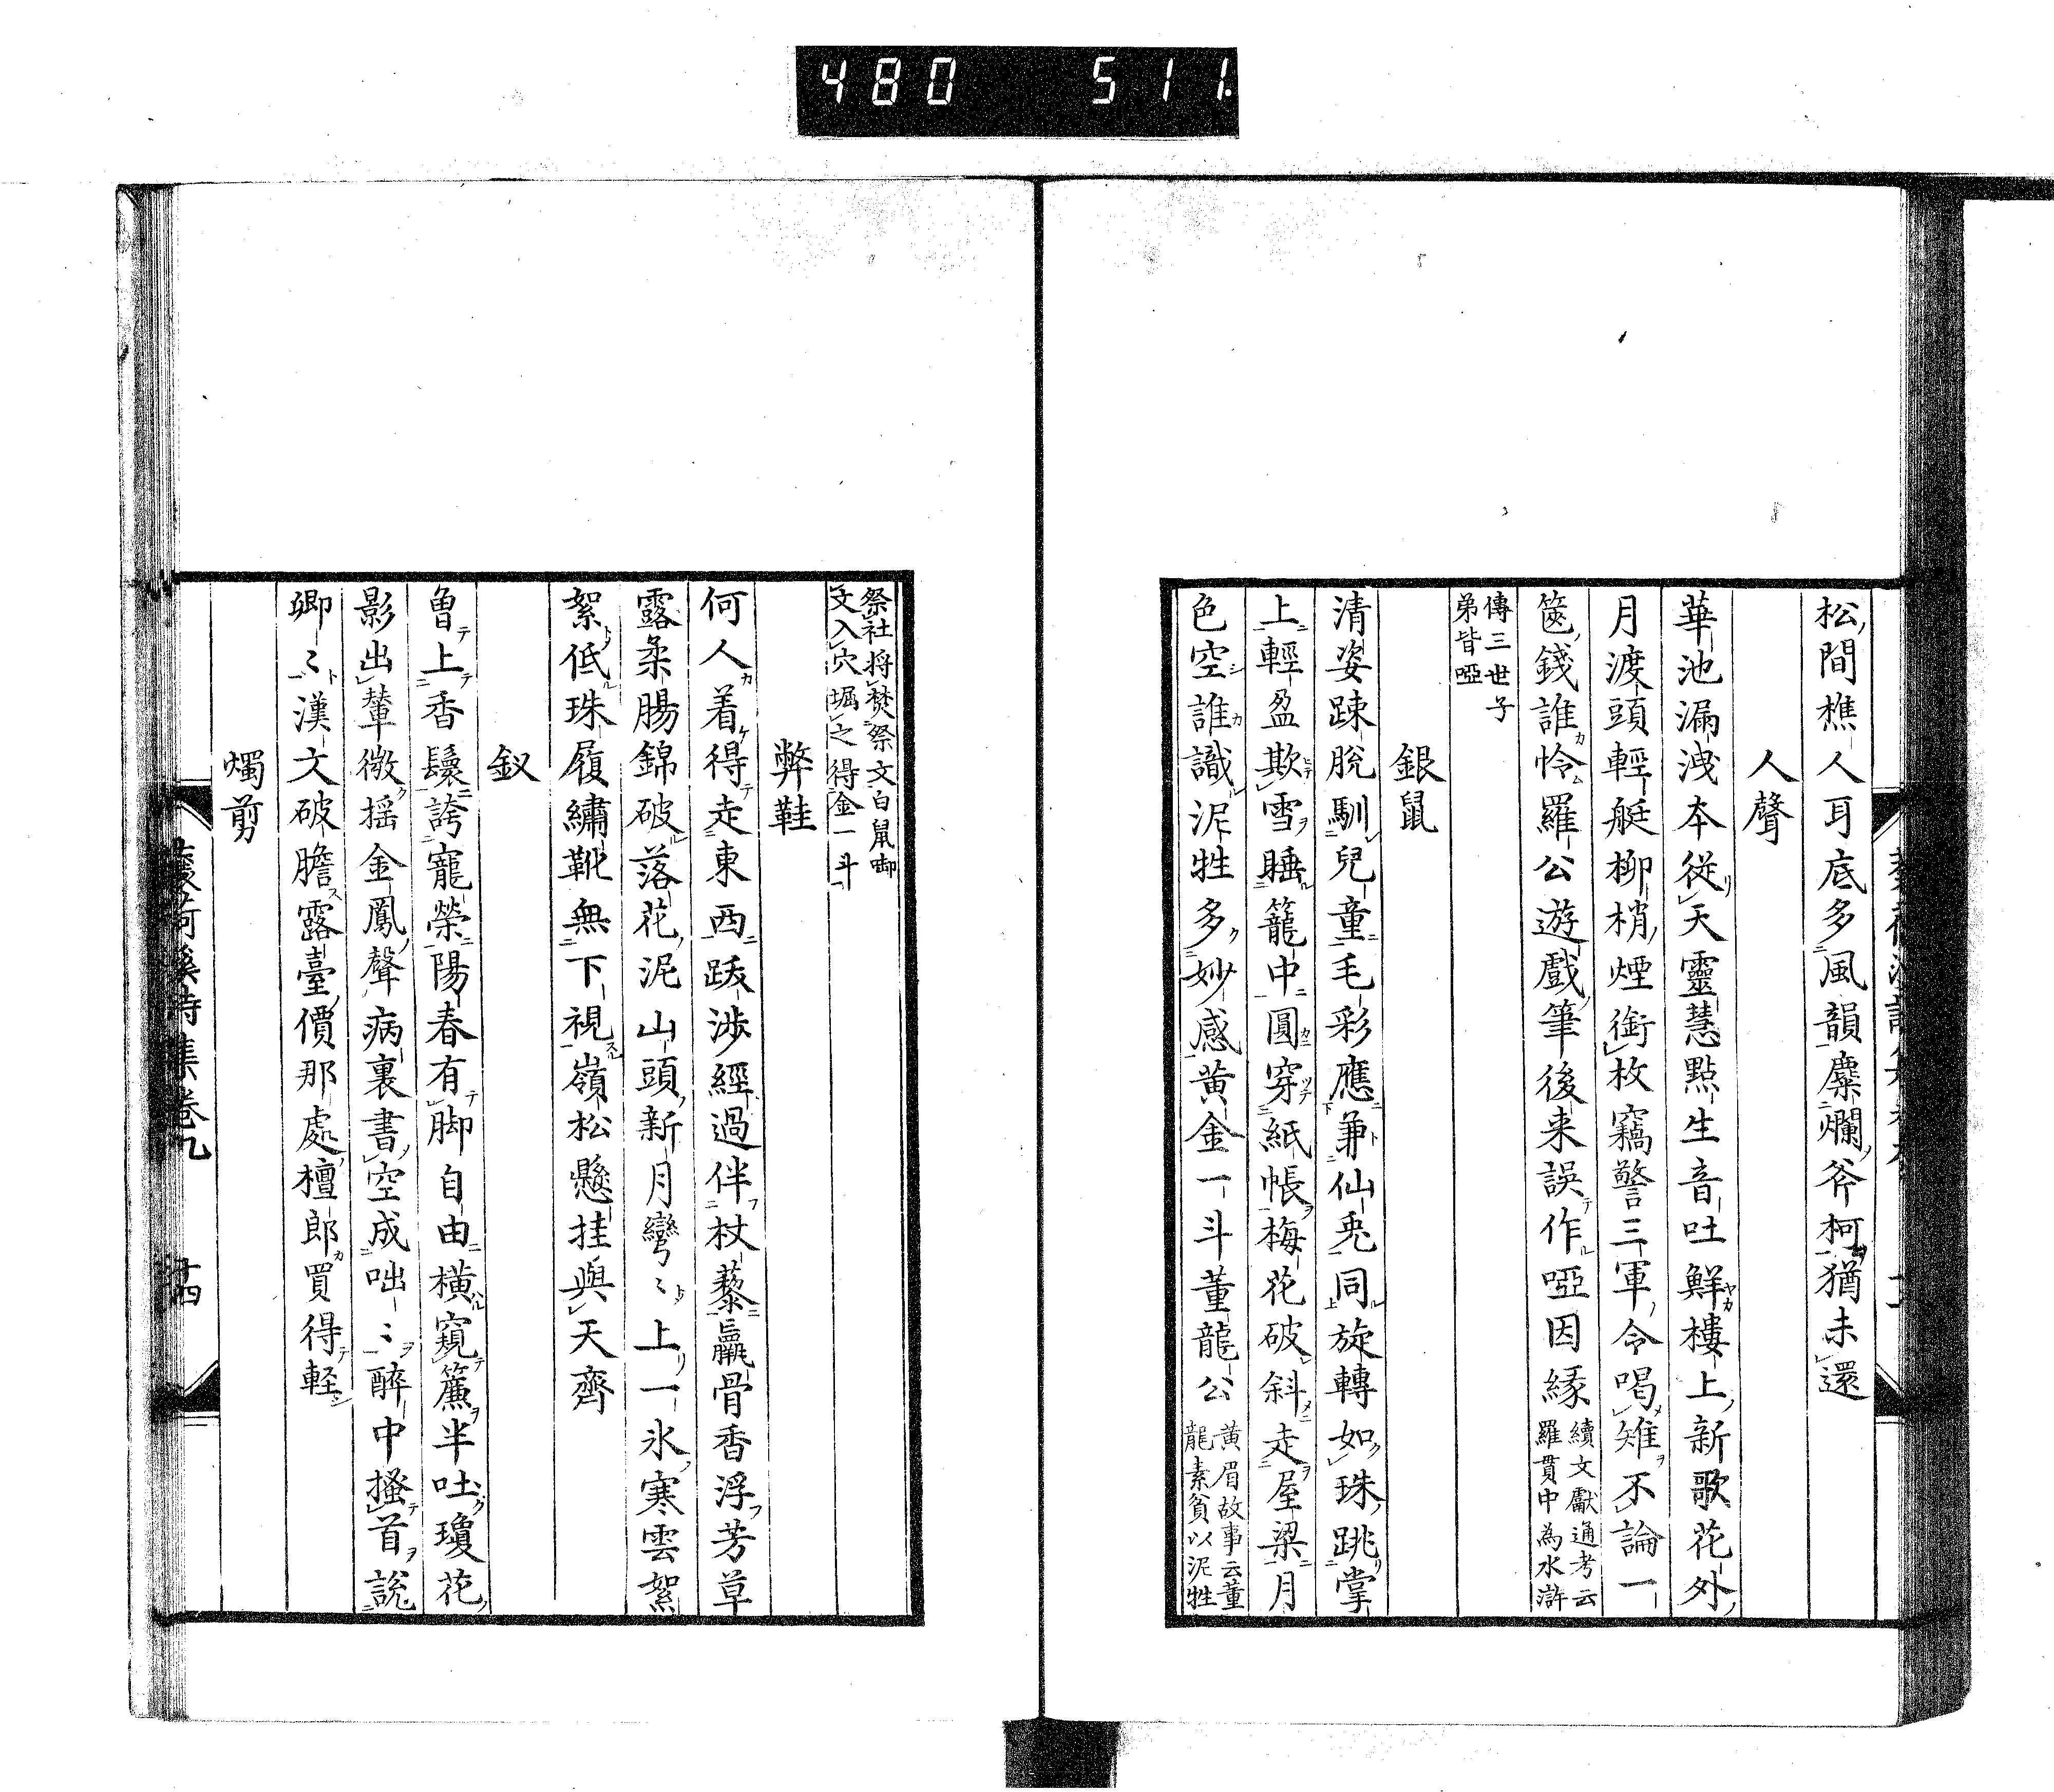 480 511.
松間樵人耳底多風韻麋爛斧柯猶未還
人聲
華池漏洩本従天靈慧點生音吐鮮樓上新歌花外
月渡頭輕艇柳梢煙銜枚竊警三軍令喝雉不論一
篋錢誰怜羅公遊戲筆後来誤作啞因縁
續文獻通考云
羅貫中為水滸
傳三世子
弟皆啞
銀鼠
清姿踈脫馴兒童毛彩應兼仙兎同旋轉如珠跳掌
上輕盈欺雪睡籠中圓穿紙帳梅花破斜走屋梁月
色空誰識泥牲多妙感黄金一斗董龍公
黄眉故事云董
龍素貧以泥牲
祭社将焚祭文白鼠啣
文入穴堀之得金一斗
弊鞋
何人着得走東西跋渉經過伴杖藜羸骨香浮芳草
露柔腸錦破落花泥山頭新月彎〻上一氷寒雲絮
絮低珠履繡靴無下視嶺松懸挂與天齊
釵
魯上香鬟誇寵榮陽春有脚自由橫窺簾半吐瓊花
影出輦微揺金鳳聲病裏書空成咄〻醉中搔首説
卿〻漢文破膽露臺價那處檀郎買得軽
燭剪
荷溪詩集卷九 十四